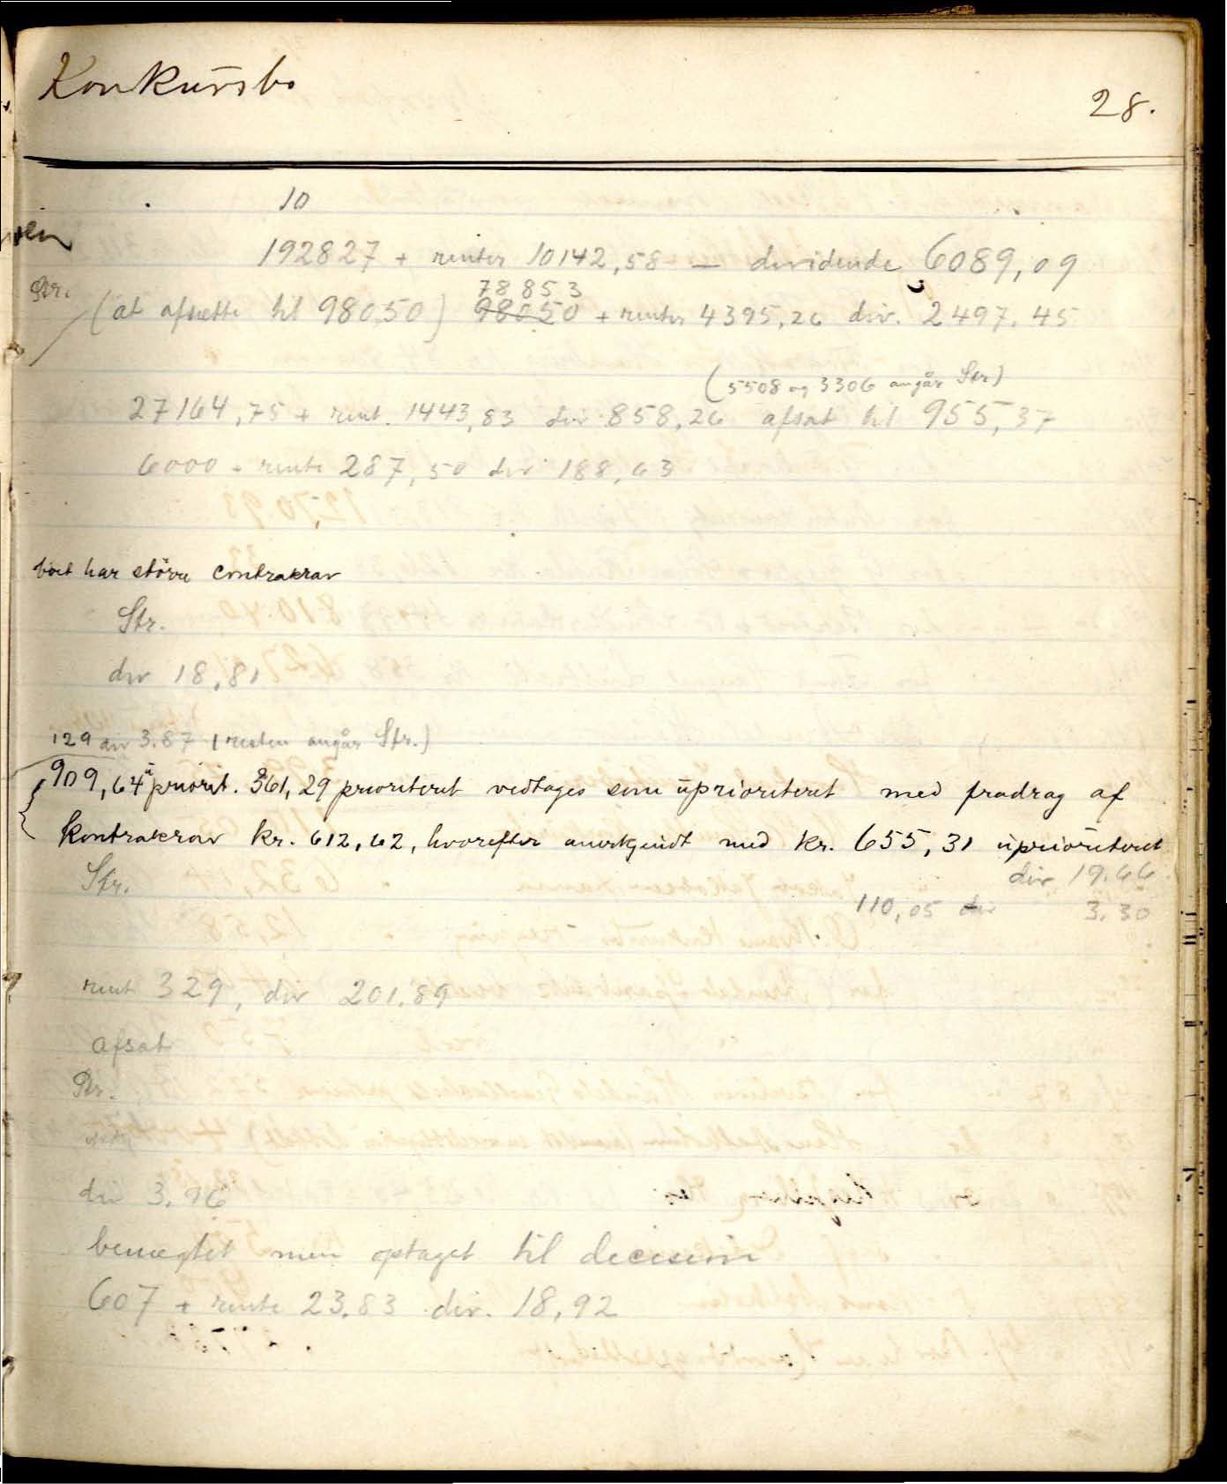 Konkursbo
28.
10
192827 + renter 10142,58 — dividende 6089,09
Str.
78853
(at afsætte til 98050) 98050 + renter 4395,26 div. 2497.45
(5508 og 3306 angår Str)
27164,75 + rent. 1443,83 div 858,26 afsat til 955,37
6000 + rente 287,50 div 188,63
boet har större contrakrav
Str.
div 18,81
129 div 3.87 (resten angår Str.)
909,64 ŭpriorit. 361,29 prioriteret vedtages som ŭprioriteret med fradrag af
kontrakrav kr. 612,62, hvorefter anerkjendt med kr. 655,31 ŭprioriteret
Str.
div 19.66
110,05 div 3.30
rent 329, div 201.89
afsat
Str.
div 3.96
benægtet men optaget til decision
607 + rente 23.83 div. 18,92